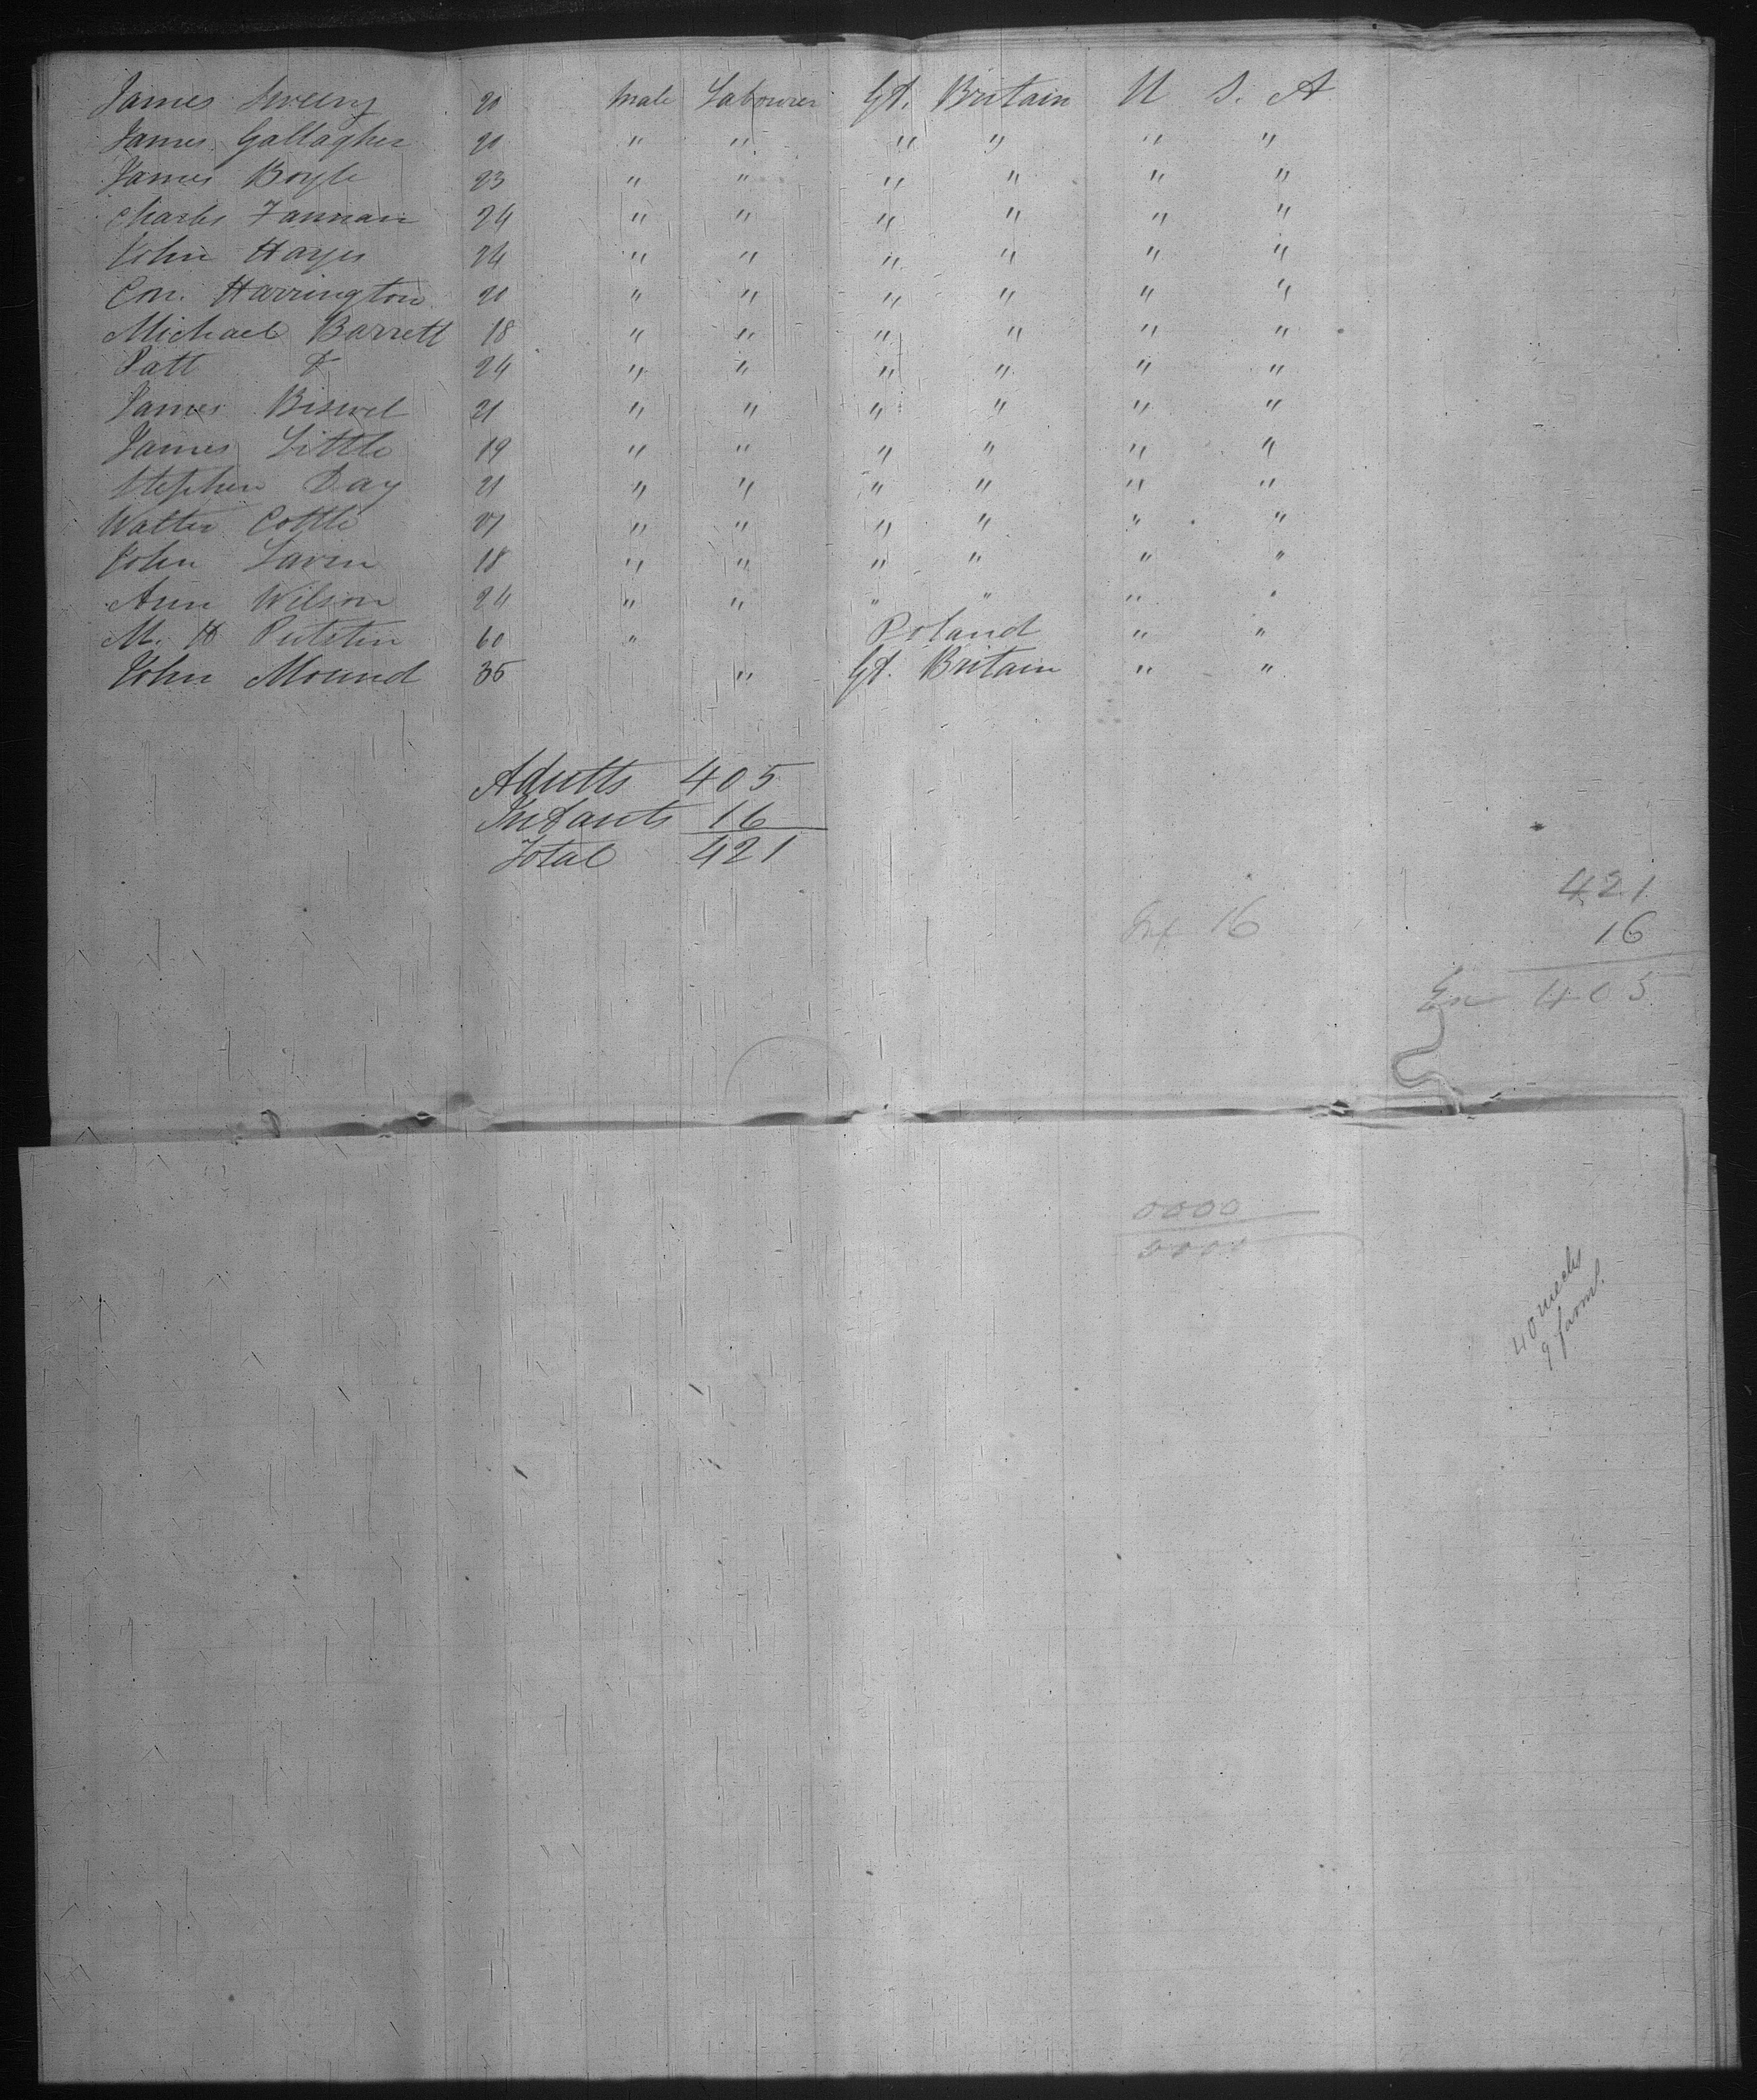 James Sweeny 20 Male Labourer Gt. Britain U S. A
James Gallagher 20 " " " " " "
James Boyle 23 " " " " " "
Charles Fannan 24 " " " " " "
John Hayes 24 " " " " " "
Con. Harrington 20 " " " " " "
Michael Barrett 18 " " " " " "
Patt Do 24 " " " " " "
James 21 " " " " " "
James Little 19 " " " " " "
Stephen Day 21 " " " " " "
Walter Cottle 21 " " " " " "
John Lavin 18 " " " " " "
Ann Wilson 24 " " " " " "
M. H 60 " Poland " "
John Mound 35 " Gt. Britain " "
Adults 405
Infants 16
Total 421
421
Inf 16 16
405
0000
0000
40 mechs
9 farm.